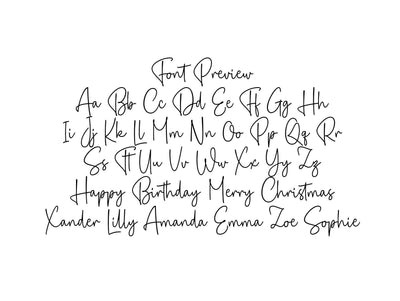 Font Preview
Aa Bb Cc Dd Ee Ff Gg Hh
Ii Jj Kk Ll Mm Nn Oo Pp Qq Rr
Ss Tt Uu Vv Ww Xx Yy Zz
Happy Birthday Merry Christmas
Xander Lilly Amanda Emma Zoe Sophie